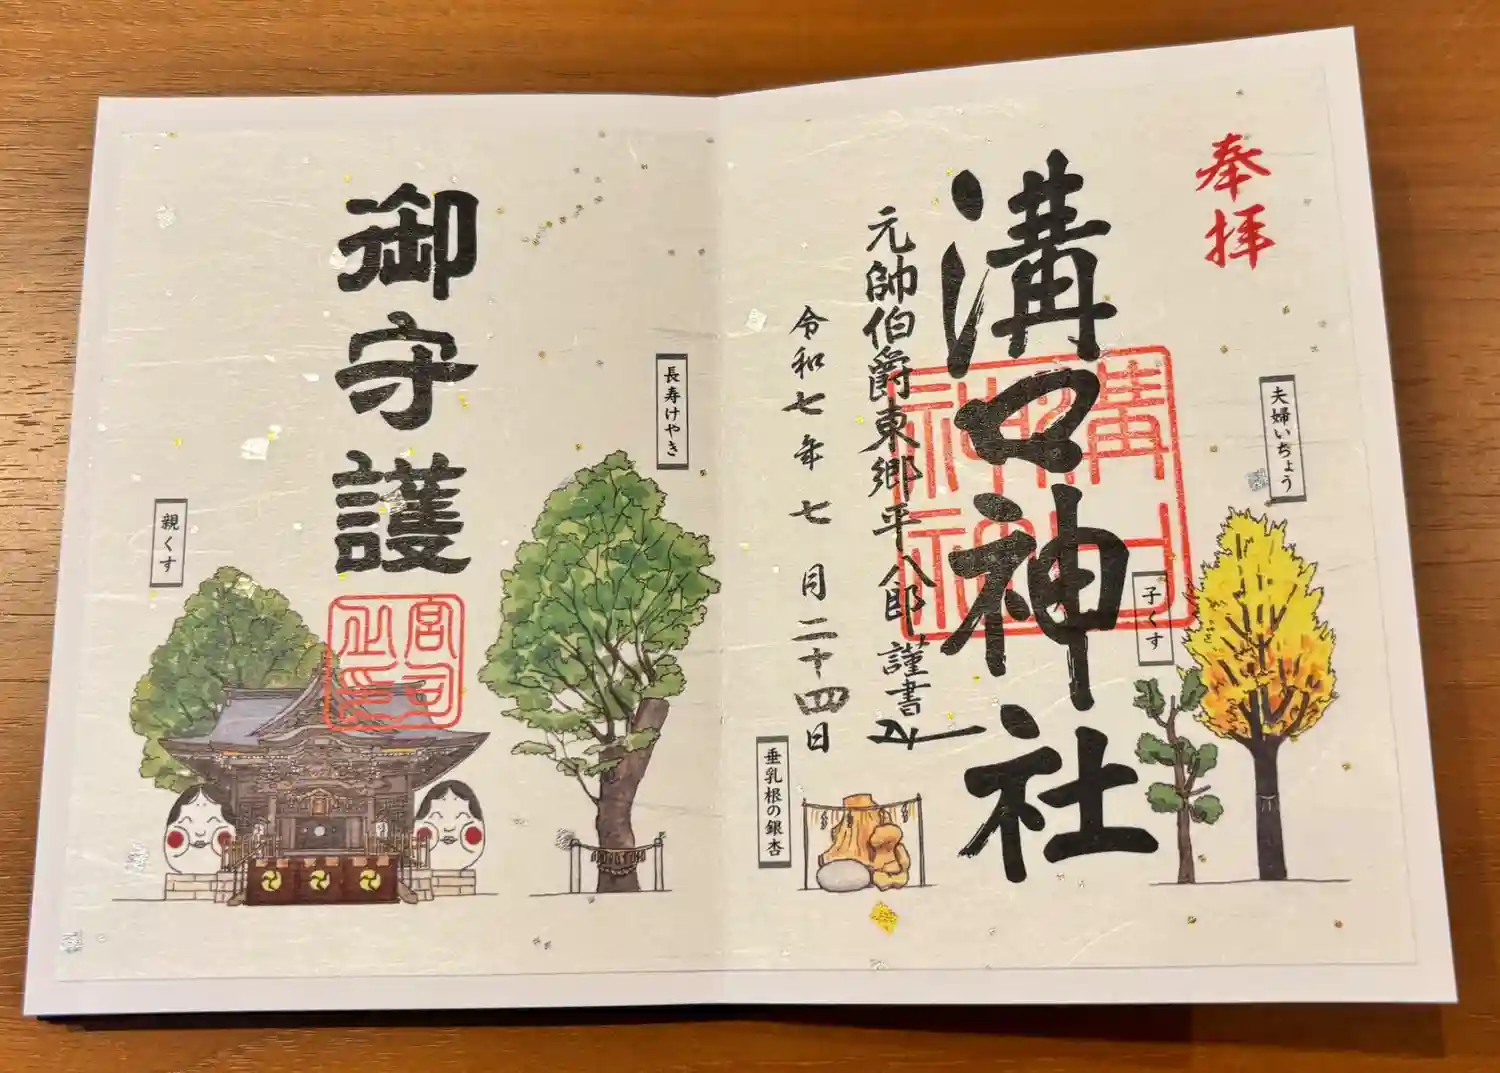 奉拝
夫婦いちょう
子くす
溝口神社
溝口神社
元帥伯爵東郷平八郎謹書
令和七年七月二十四日
垂乳根の銀杏
長寿けやき
御守護
親くす